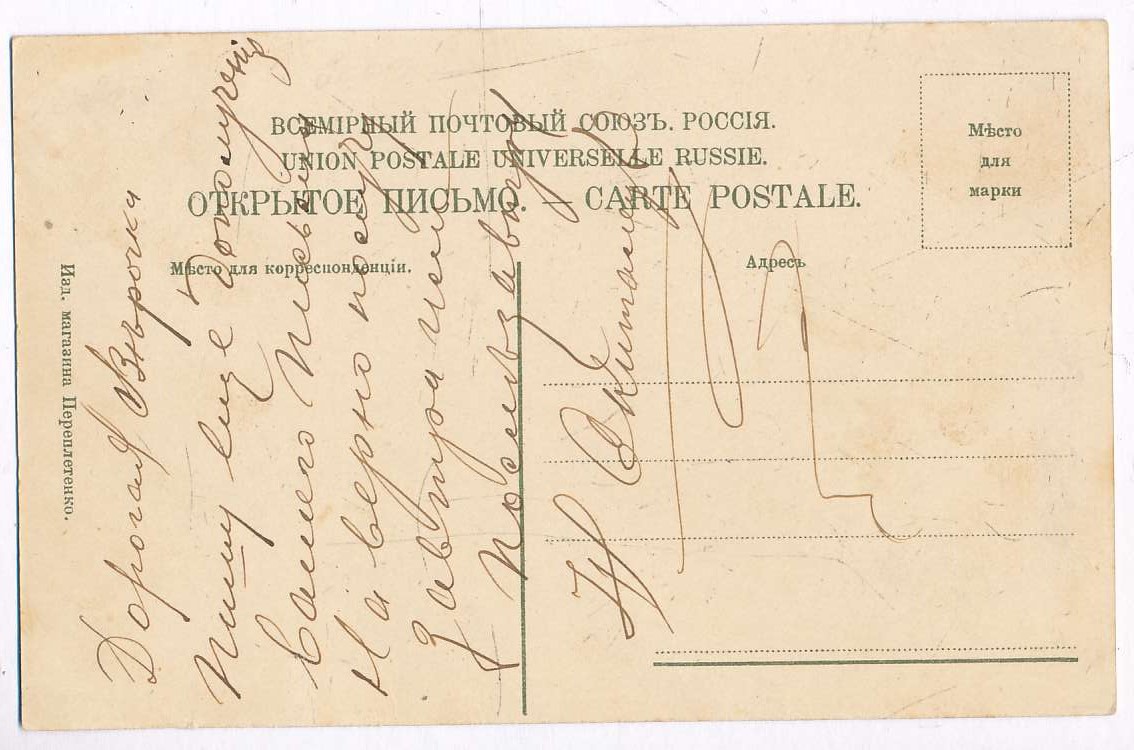 ВСЕМІРНЫЙ ПОЧТОВЫЙ СОЮЗЪ. РОССІЯ.
UNION POSTALE UNIVERSELLE RUSSIE.
ОТКРЫТОЕ ПИСЬМО. — CARTE POSTALE.
Мѣсто
для
марки
Мѣсто для корреспонденціи.
Адресъ
Изд. магазина Переплетенко.
Дорогая Вѣрочка
пишу еще до получения
вашего письма
На верно получу
Завтра или
послѣзавтра